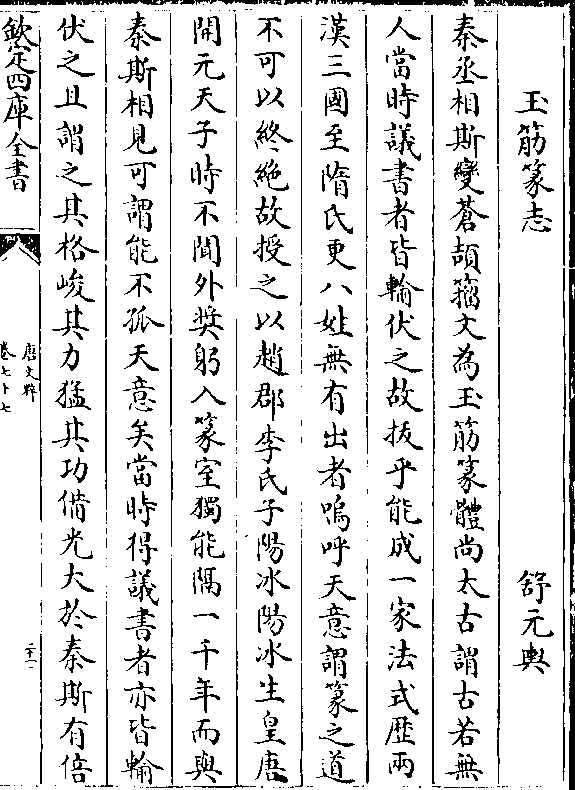 玉筋篆志 舒元輿
秦丞相斯變蒼頡籀文為玉筋篆體尚太古謂古若無
人當時議書者皆輸伏之故拔乎能成一家法式歴兩
漢三國至隋氏更八姓無有出者嗚呼天意謂篆之道
不可以終絶故授之以趙郡李氏子陽冰陽冰生皇唐
開元天子時不聞外奬躬入篆室獨能隔一千年而與
秦斯相見可謂能不孤天意矣當時得議書者亦皆輸
伏之且謂之其格峻其力猛其功備光大於秦斯有倍
欽定四庫全書
唐文粹
卷七十七